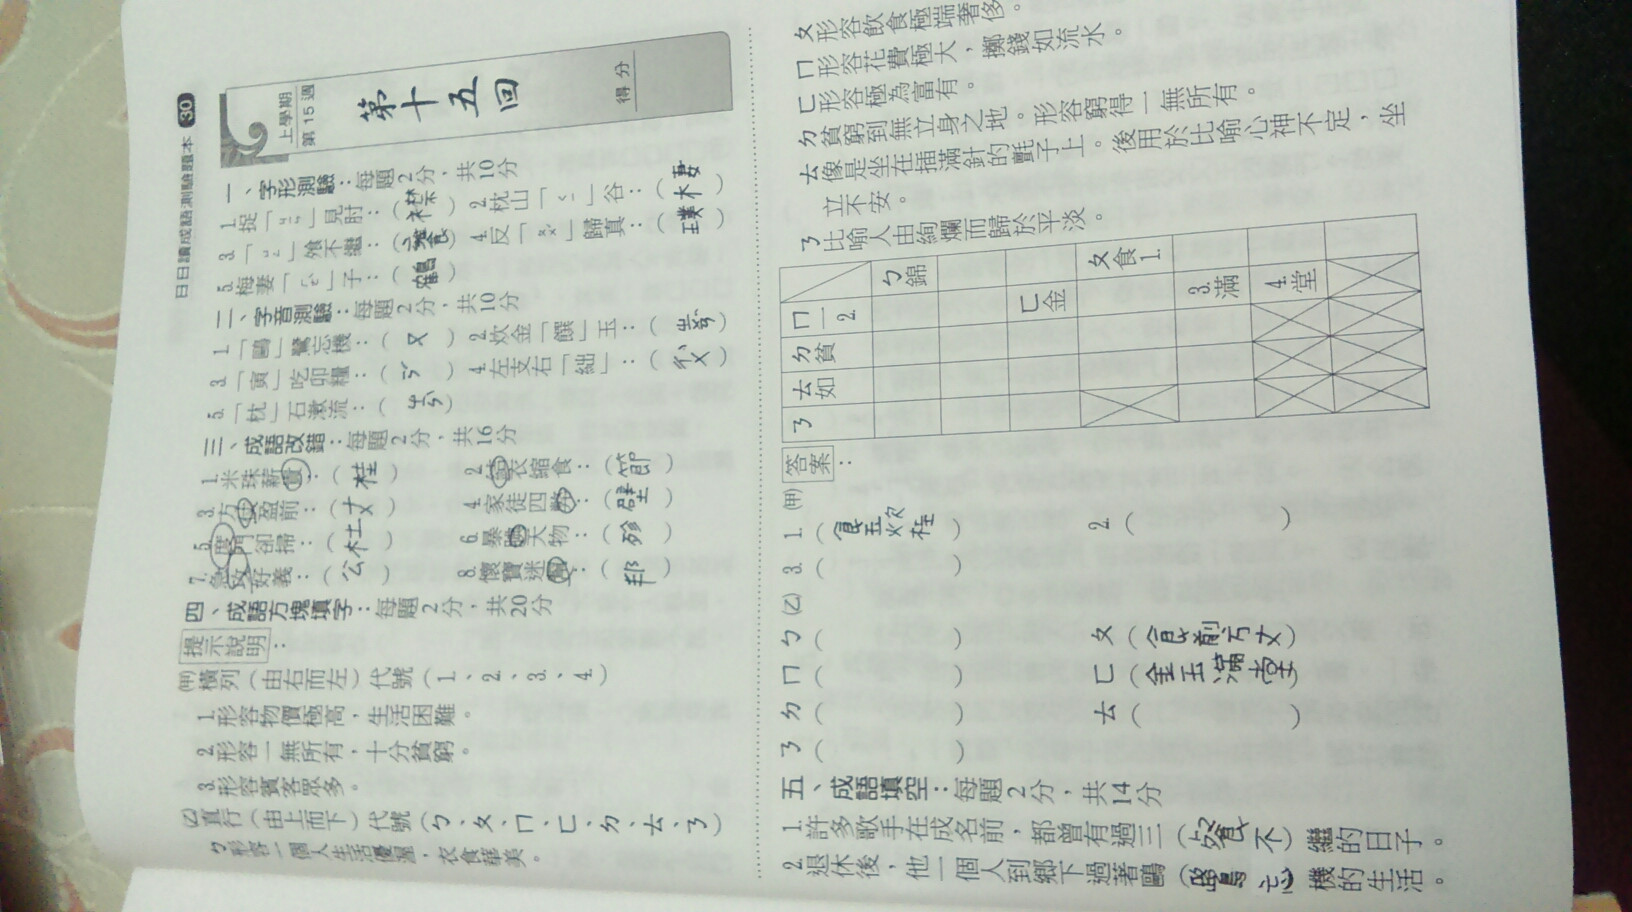 日日讀成語測驗題本 30
上學期
第15週
第十五回
得分
一、字形測驗：每題2分，共10分
1.捉「」見肘：（襟） 2.枕山「」谷：（）
3.「」飧不繼：（） 4.反「」歸真：（璞）
5.梅妻「」子：（鶴）
二、字音測驗：每題2分，共10分
1.「鷗」鷺忘機：（ㄡ） 2.炊金「饌」玉：（）
3.「寅」吃卯糧：（） 4.左支右「絀」：（）
5.「枕」石漱流：（）
三、成語改錯：每題2分，共16分
1.米珠薪：（桂） 2.衣縮食：（節）
3.方盈前：（丈） 4.家徒四：（壁）
5.度門卻掃：（杜） 6.暴天物：（殄）
7.急好義：（公） 8.懷寶迷：（邦）
四、成語方塊填字：每題2分，共20分
提示說明：
㈙橫列（由右而左）代號（1、2、3、4）
1.形容物價極高，生活困難。
2.形容一無所有，十分貧窮。
3.形容賓客眾多。
㈚直行（由上而下）代號（ㄅ、ㄆ、ㄇ、ㄈ、ㄉ、ㄊ、ㄋ）
ㄅ形容一個人生活優渥，衣食華美。
ㄆ形容飲食極端奢侈。
ㄇ形容花費極大，擲錢如流水。
ㄈ形容極為富有。
ㄉ貧窮到無立身之地。形容窮得一無所有。
ㄊ像是坐在插滿針的氈子上。後用於比喻心神不定，坐
立不安。
ㄋ比喻人由絢爛而歸於平淡。
ㄋ ㄊ如 ㄉ貧 ㄇ一2.
ㄅ錦
ㄈ金
ㄆ食1.
3.滿
4.堂
答案：
㈙
1.（） 2.（ ）
3.（ ）
㈚
ㄅ（ ） ㄆ（食前方丈）
ㄇ（ ） ㄈ（金玉滿堂）
ㄉ（ ） ㄊ（ ）
ㄋ（ ）
五、成語填空：每題2分，共14分
1.許多歌手在成名前，都曾有過三（飧不）繼的日子。
2.退休後，他一個人到鄉下過著鷗（鷺忘）機的生活。